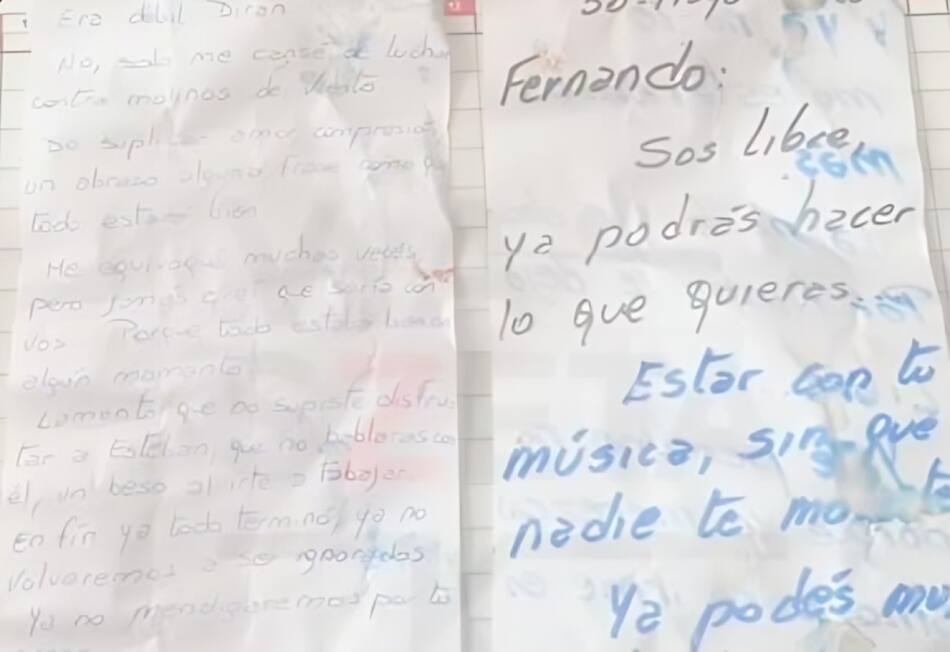 Era débil Diran
No, solo me cansé de lucha
contra molinos de viento
De suplicar amor compresión
un abrazo alguna frase como
todo estará bien
Me equivoqué muchas veces
pero jamás que sería con
vos Porque todo estaba bien en
algún momento
Lamento que no supiste disfru
tar a Esteban, que no hablaras con
él, un beso al irte a trabajar
En fin ya todo terminó, ya no
volveremos a ser ignorados
Ya no mendigaremos por tu
30
Fernando:
Sos libre,
ya podrás hacer
lo que quieras.
Estar con tu
música, sin que
nadie te mo
Ya podés mu